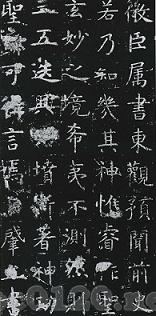 微臣属書東觀預聞前史
若乃知幾其神惟睿作
玄妙之境希夷不測則
三五迭興墳斯著神功
聖可言焉肇書